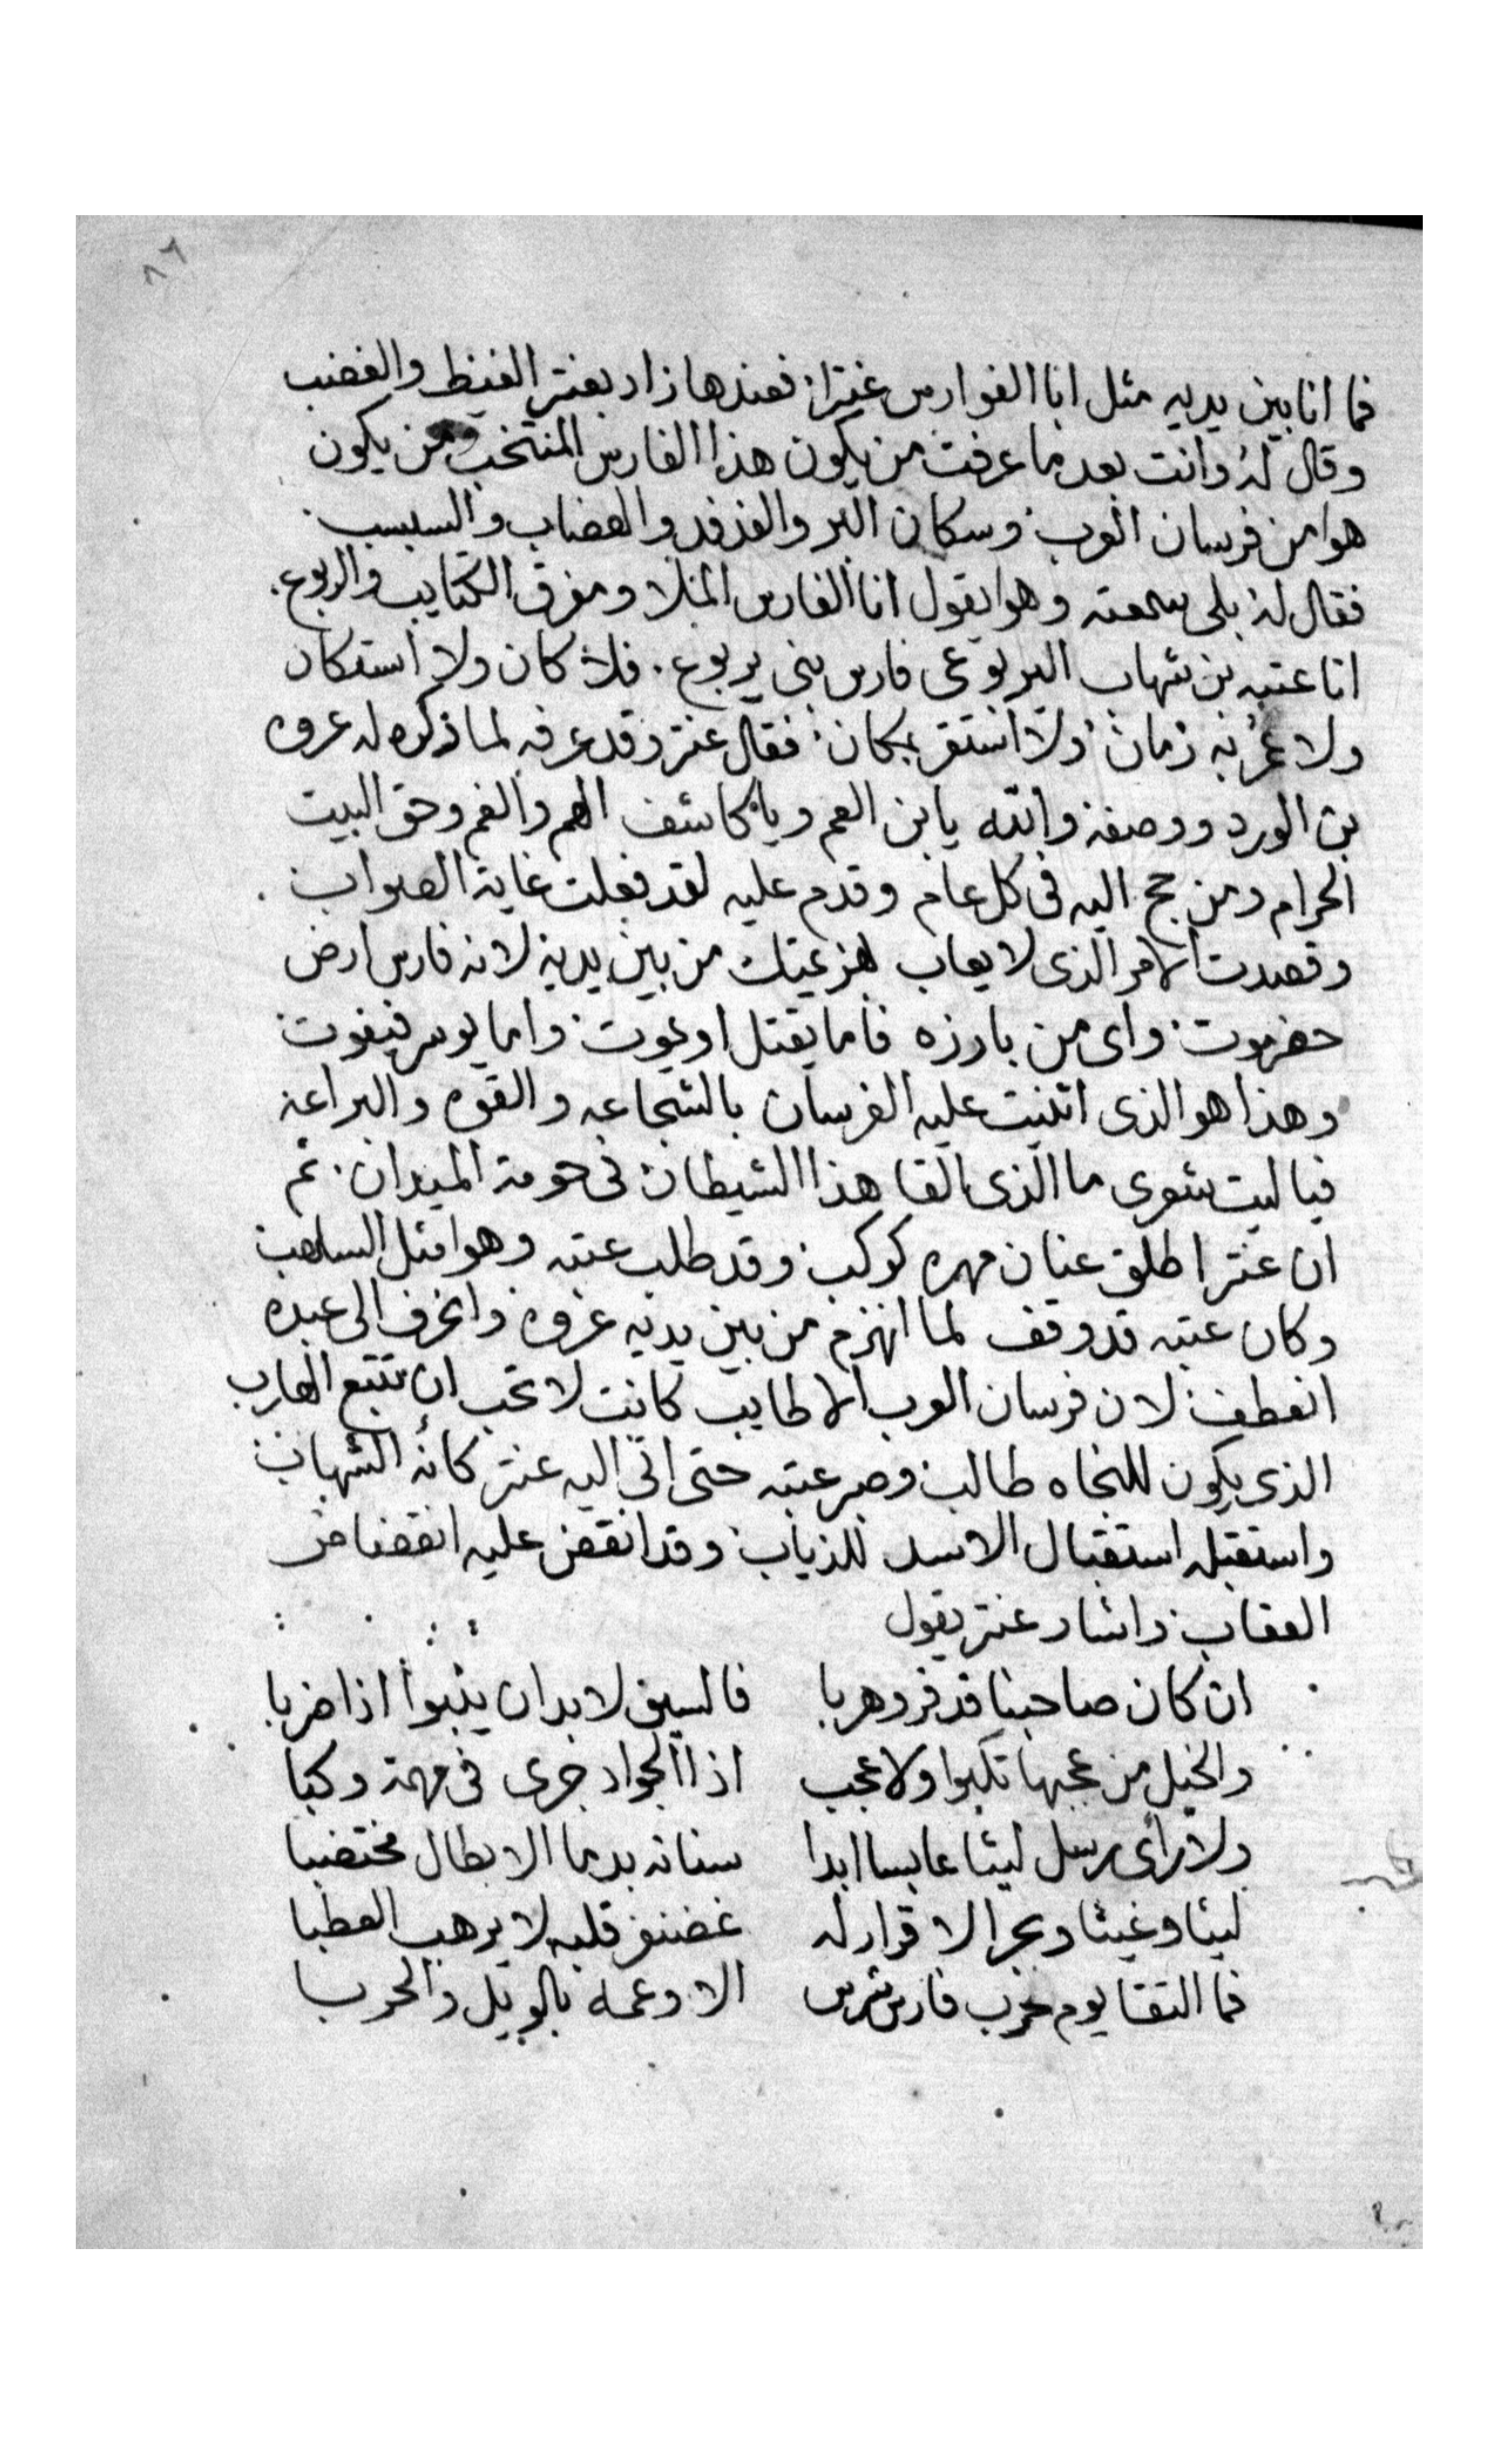 ٨٦
فما انا بين يديه مثل ابا الفوارس عنترا: فعندها زاد بعنتر الغيظ والغضب
وقال له وانت بعد ما عرفت من يكون هذا الفارس المنتخب ومن يكون
هوا من فرسان العرب وسكان البر والفدفد والهضاب والسبسب
فقال له بلى سمعته وهوا يقول انا الفارس ومفرق الكتايب والربوع.
انا عتبه بن شهاب اليربوعى فارس بنى يربوع. فلا كان ولا استكان
ولا عمر به زمان ولا استقر بمكان: فقال عنتر وقد عرفه لما ذكره له عروه
بن الورد ووصفه والله يا بن العم ويا كاشف الهم والغم وحق البيت
الحرام ومن حج اليه فى كل عام وقدم عليه لقد فعلت غاية الصواب
وقصدت الامر الذى لا يعاب هزيمتك من بين يديه لانه فارس ارض
حضرموت واى من بارزه فاما يقتل او يموت واما يوسر فيفوت
وهذا هو الذى اتنيت عليه الفرسان بالشجاعه والقوه والبراعه
فيا ليت شعرى ما الذى القا هذا الشيطان فى حومة الميدان. ثم
ان عنتر اطلق عنان مهره كوكب وقد طلب عتبه وهوا مثل السلهب
وكان عتبه قد وقف لما انهزم من بين يديه عروه وانحرف الى عبده
انعطف لان فرسان العرب الاطايب كانت لا تحب ان تتبع الهارب
الذى يكون للنجاه طالب وصبر عتبه حتى اتى اليه عنتر كانه الشهاب
واستقبله استقبال الاسد للذياب وقد انقض عليه انقضاض
العقاب واشار عنتر يقول
ان كان صاحبنا قد فر وهربا فالسيف لا بد ان ينبوا اذا ضربا
والخيل من عجبها تكبوا ولا عجب اذا الجواد جرى فى مهمة وكبا
ولا رأى رسل ليثا عابسا ابدا سنانه بدما الابطال مختضبا
ليثا وغيثا وبحرا لا قرار له غضنفر قلبه لا يرهب العطبا
فما التقا يوم حرب فارس شرس الا وعمه بالويل والحربا